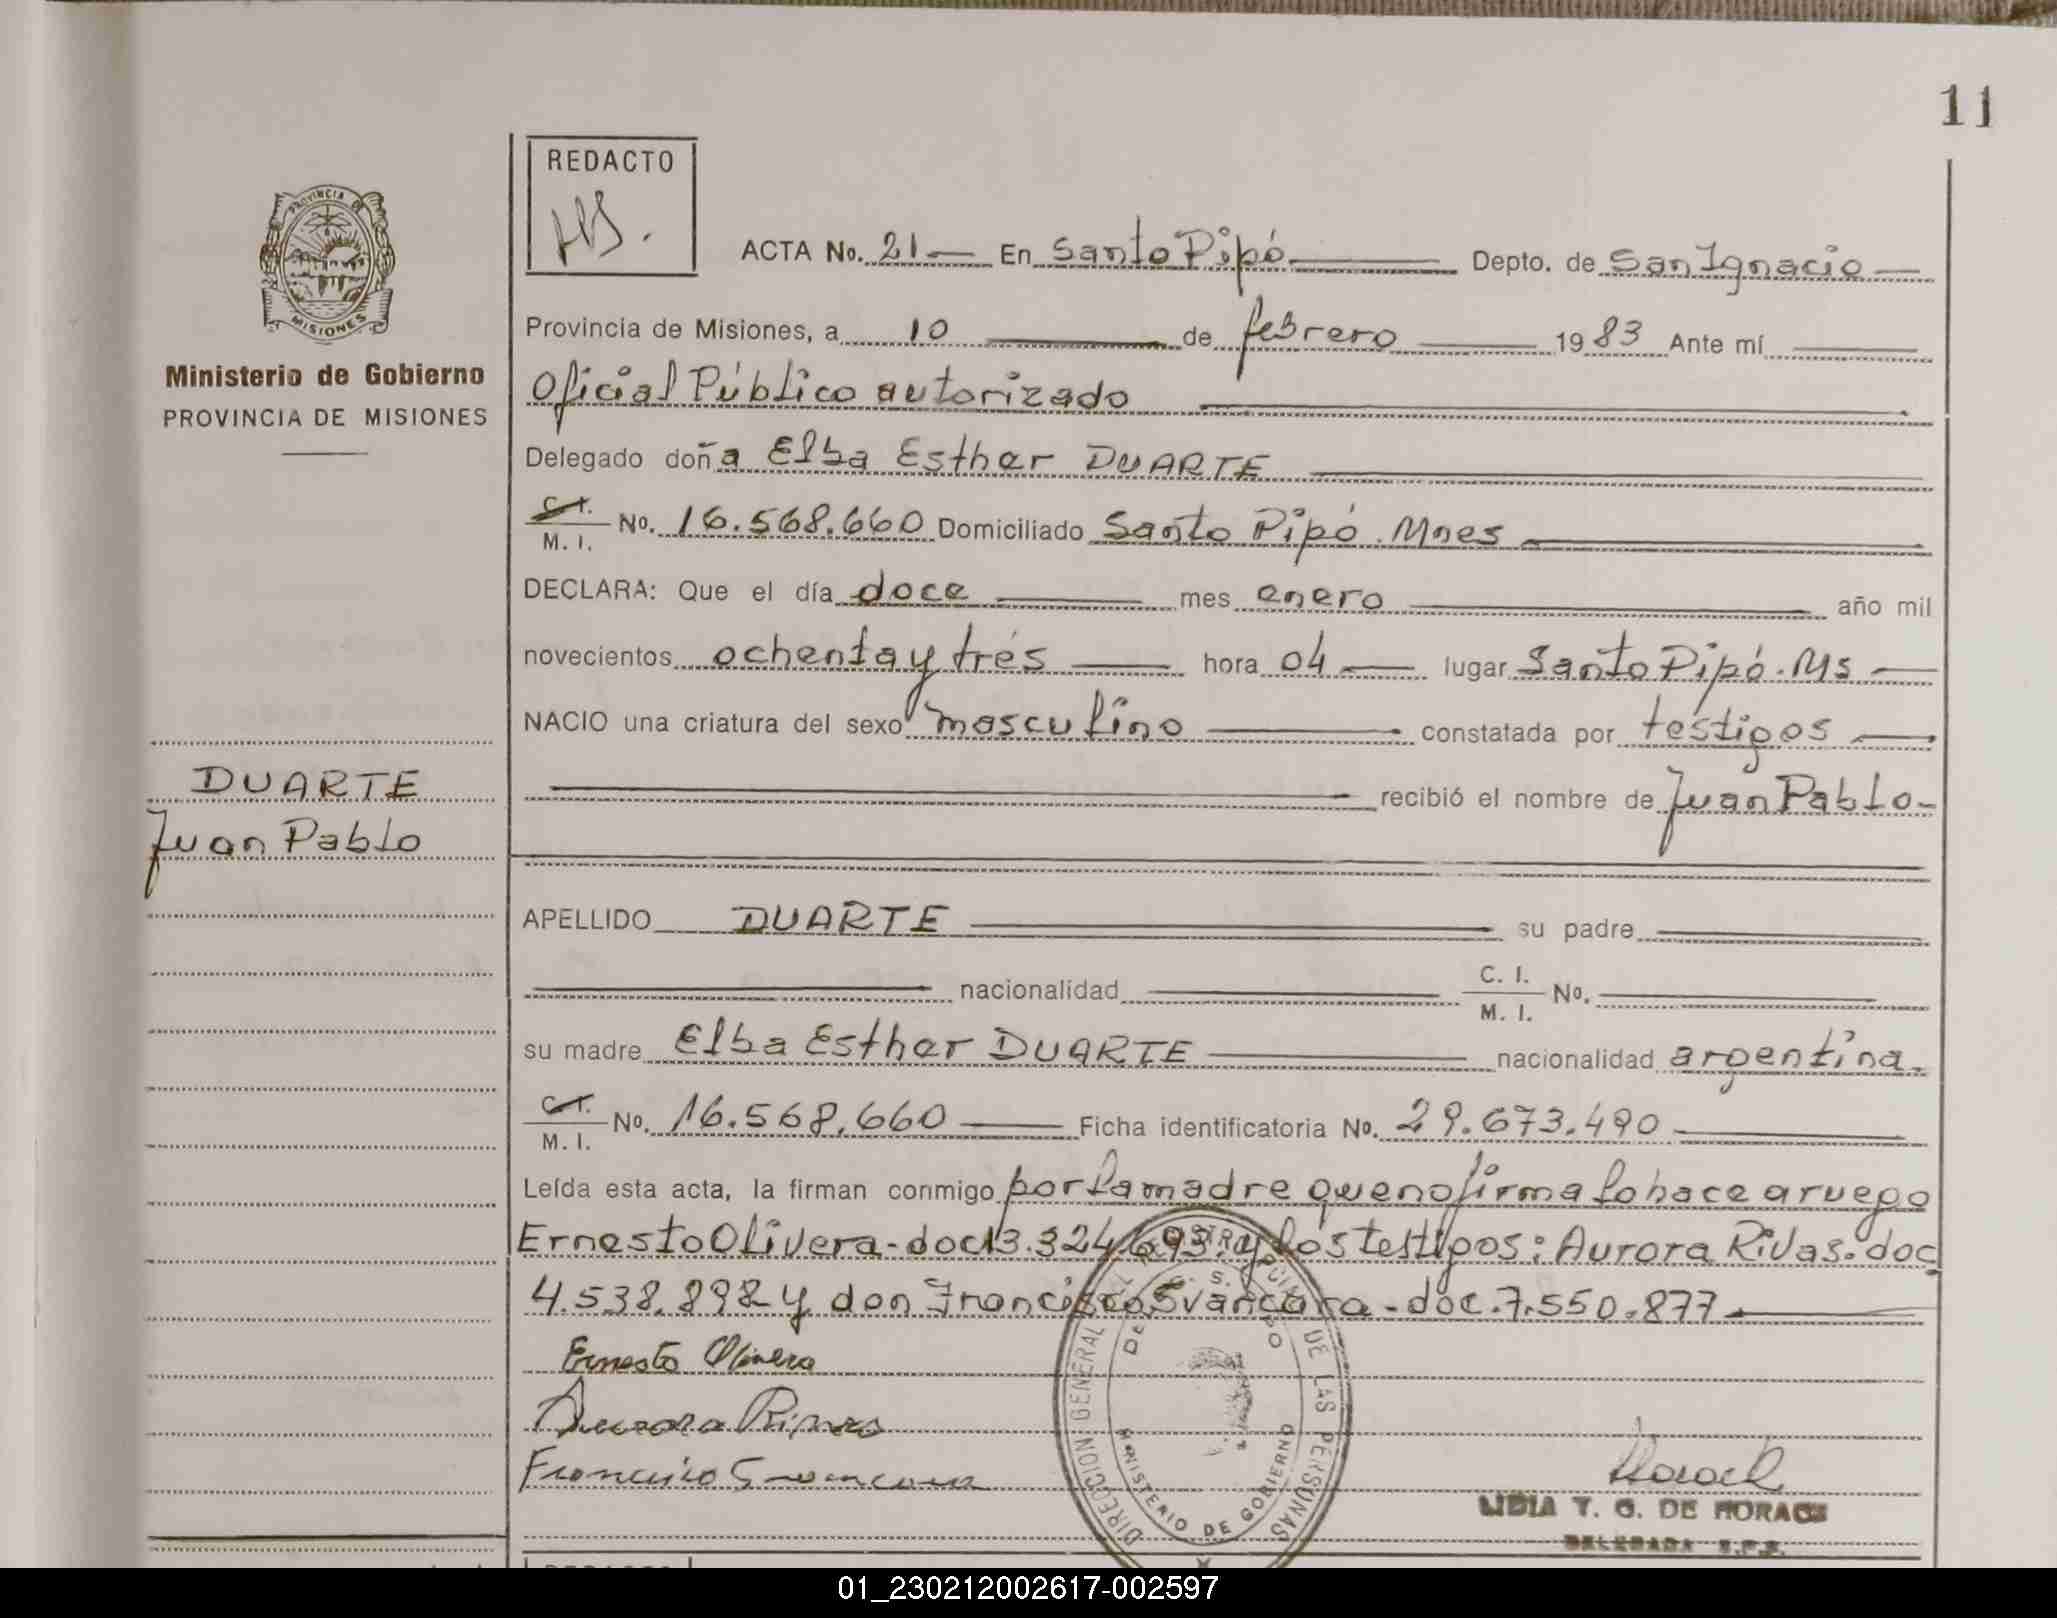 11
REDACTO
ACTA No. 21 En Santo Pipó Depto. de San Ignacio
PROVINCIA DE
MISIONES
Provincia de Misiones, a 10 de febrero 1983 Ante mí
Ministerio de Gobierno
PROVINCIA DE MISIONES
Oficial Público autorizado
Delegado doña Elba Esther DUARTE
C.I.
M. I. No. 16.568.660 Domiciliado Santo Pipó. Mnes
DECLARA: Que el día doce mes enero año mil
novecientos ochenta y trés hora 04 lugar Santo Pipó. Ms
NACIO una criatura del sexo masculino constatada por testigos
recibió el nombre de Juan Pablo
DUARTE
Juan Pablo
APELLIDO DUARTE su padre
nacionalidad C. I.
M. I. No.
su madre Elba Esther DUARTE nacionalidad argentina.
C.I.
M. I. No. 16.568.660 Ficha identificatoria No. 29.673.490
Leída esta acta, la firman conmigo por la madre que no firma lo hace a ruego
Ernesto Olivera-doc 13.324.693. y los testigos: Aurora Rivas. doc
4.538.892 y don Francisco Svancara - doc. 7.550.877
Ernesto Olivera
Aurora Rivas
Francisco Svancara
DIRECCION GENERAL DEL REGISTRO CIVIL DE LAS PERSONAS
MINISTERIO DE GOBIERNO
LIDIA T. G. DE HORACK
DELEGADA
01_230212002617-002597